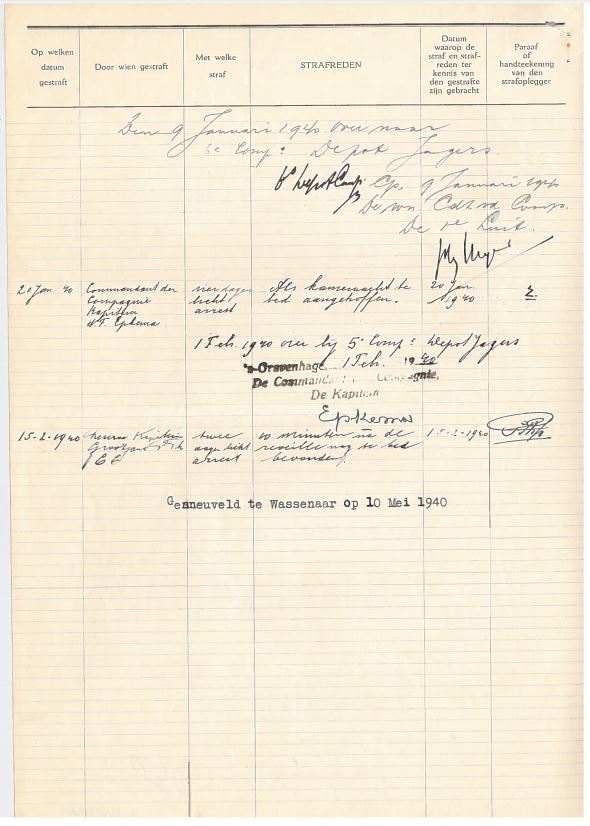 Op welken
datum
gestraft
Door wien gestraft
Met welke
straf
STRAFREDEN
Datum
waarop de
straf en straf-
reden ter
kennis van
den gestrafte
zijn gebracht
Paraaf
of
handteekening
van den
strafoplegger
9 Januari 1940 over naar
6e Comp: Depot Jagers.
6e Depot Comp 9 Januari 1940
De wn Cdt vd Comp.
De 1e Luit.
20 Jan '40
Commandant der
Compagnie
Kapitein
Epkema
vier dagen
licht
arrest
Als kamerwacht te
bed aangetroffen.
20 Jan.
1940
1 Feb. 1940 over bij 5e Comp: Depot Jagers
's-Gravenhage, 1 Feb. 1940
De Commandant Compagnie,
De Kapitein
Epkema
15-2-1940
Kapitein
twee
dagen licht
arrest
10 minuten na de
reveille nog te bed
bevonden
15-2-1940
Gesneuveld te Wassenaar op 10 Mei 1940